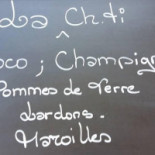 La Ch.ti
oco ; Champign
Pommes de Terre
Lardons.
Maroilles